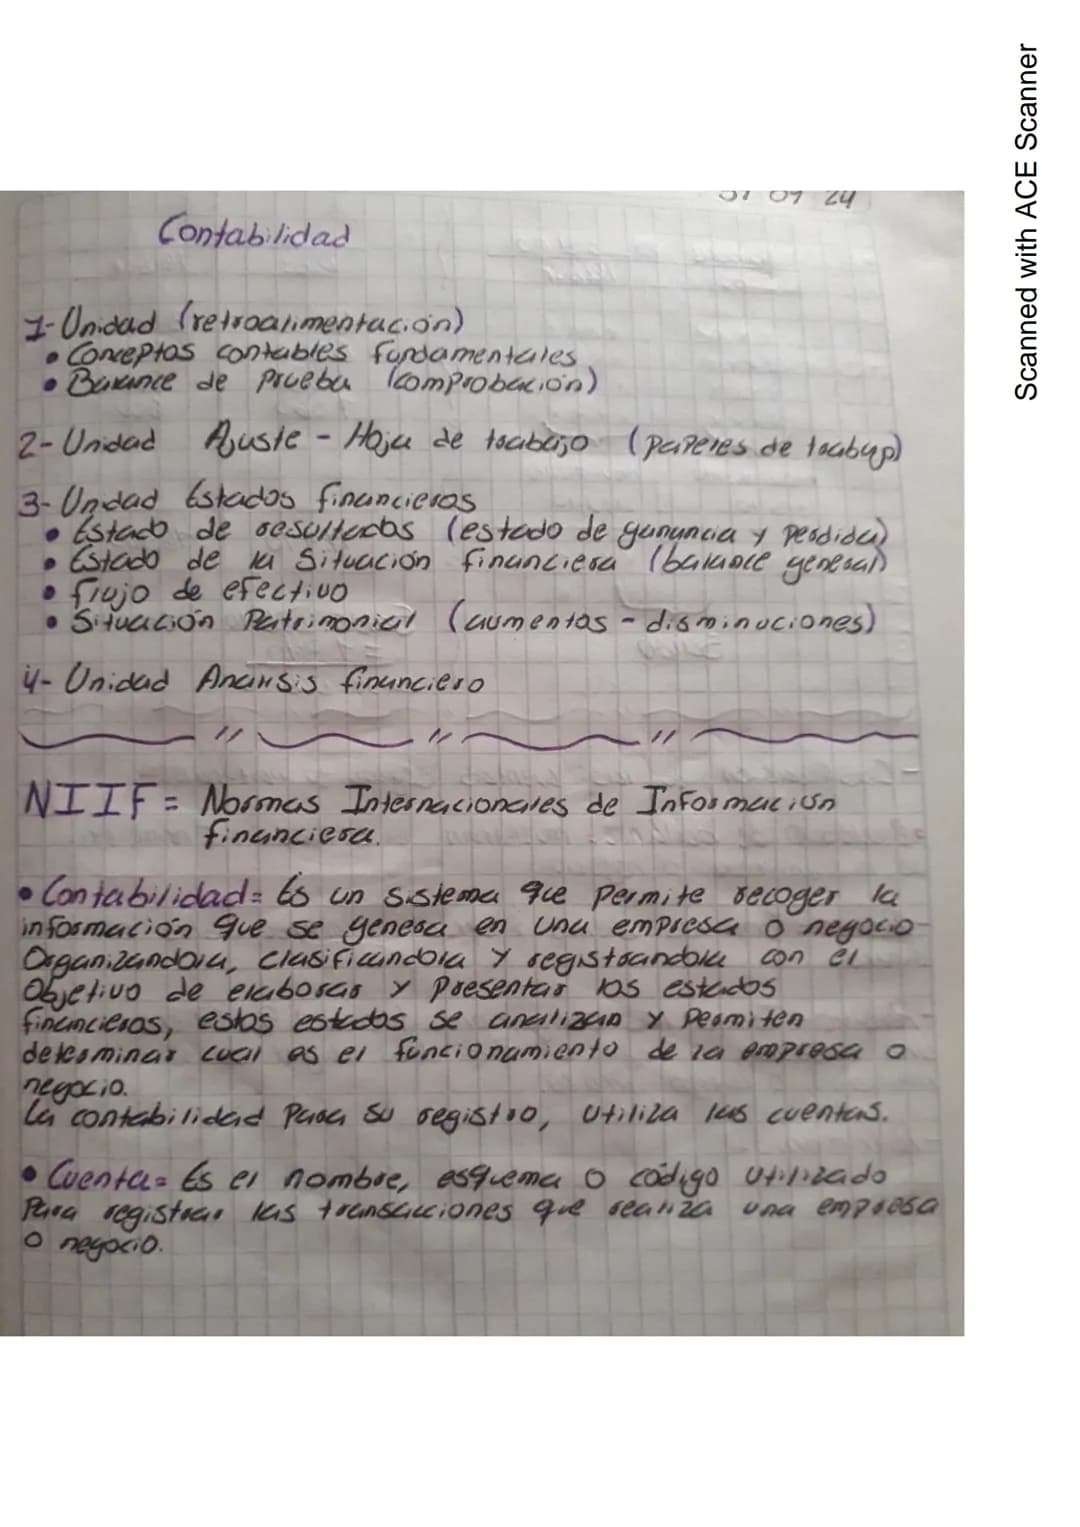 09 24
Contabilidad
1- Unidad (retroalimentación)
• Conceptos contables fundamentales
• Balance de Prueba (comprobación)
2- Unidad Ajuste - Hoja de trabajo (papeles de trabajo)
3- Unidad Estados financieros
• Estado de resultados (estado de ganancia y perdida)
• Estado de la Situación financiera (balance general)
• flujo de efectivo
• Situación Patrimonial (aumentos - disminuciones)
4- Unidad Analisis financiero
NIIF = Normas Internacionales de Información
financiera.
• Contabilidad = Es un sistema que permite recoger la
información que se genera en una empresa o negocio
Organizandola, clasificandola y registrandola con el
Objetivo de elaborar y Presentar los estados
financieros, estos estados se analizan y permiten
determinar cual es el funcionamiento de la empresa o
negocio.
La contabilidad Para su registro, utiliza las cuentas.
• Cuenta = Es el nombre, esquema o código utilizado
Para registrar las transacciones que realiza una empresa
o negocio.
Scanned with ACE Scanner